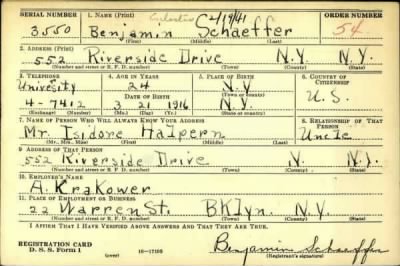 SERIAL NUMBER 1. NAME (Print) 2/19/41 ORDER NUMBER
3550 Benjamin Schaeffer 54
(First) (Middle) (Last)
2. ADDRESS (Print)
552 Riverside Drive N.Y. N.Y.
(Number and street or R. F. D. number) (Town) (County) (State)
3. TELEPHONE 4. AGE IN YEARS 5. PLACE OF BIRTH 6. COUNTRY OF CITIZENSHIP
University 24 N.Y
DATE OF BIRTH (Town or county)
4-7412 3 21 1916 N.Y U.S.
(Exchange) (Number) (Mo.) (Day) (Yr.) (State or country)
7. NAME OF PERSON WHO WILL ALWAYS KNOW YOUR ADDRESS 8. RELATIONSHIP OF THAT PERSON
Mr. Isidore Halpern Uncle
(Mr., Mrs., Miss) (First) (Middle) (Last)
9. ADDRESS OF THAT PERSON
552 Riverside Drive N.Y. N.Y.
(Number and street or R. F. D. number) (Town) (County) (State)
10. EMPLOYER'S NAME
A. Krakower
11. PLACE OF EMPLOYMENT OR BUSINESS
22 Warren St. BKlyn. N.Y.
(Number and street or R. F. D. number) (Town) (County) (State)
I AFFIRM THAT I HAVE VERIFIED ABOVE ANSWERS AND THAT THEY ARE TRUE.
REGISTRATION CARD
D. S. S. Form 1 (over) 16-17105 Benjamin Schaeffer
(Registrant's signature)